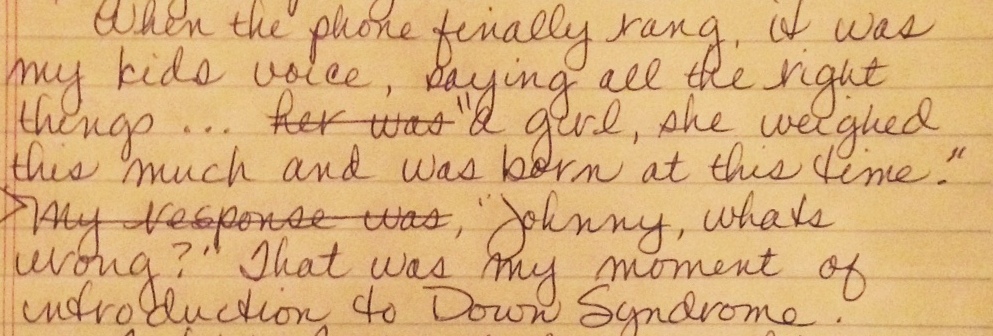 When the phone finally rang, it was
my kids voice, saying all the right
things... her was "a girl, she weighed
this much and was born at this time."
My response was, "Johnny, whats
wrong?" That was my moment of
introduction to Down Syndrome.